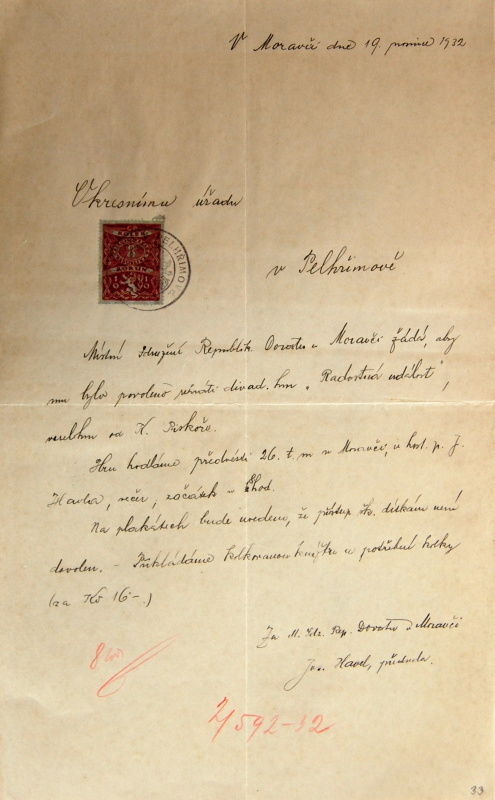 V Moravči dne 19. prosince 1932
Okresnímu úřadu
KOLEK
8
KORUN
PELHŘIMOV
v Pelhřimově
Místní Sdružení Republik. Dorostu v Moravči žádá, aby
mu bylo povoleno sehráti divad. hru „Radostná událost",
veselhru od K. Piskoře.
Hru hodláme předvésti 26. t. m. v Moravči, v host. p. J.
Havla, večer, začátek v 8 hod.
Na plakátech bude uvedeno, že přístup šk. dítkám není
dovolen. – Přikládáme kolkovanou knížku a potřebné kolky
(za Kč 16–.)
Za M. Sdr. Rep. Dorostu v Moravči
Jos. Havel, předseda.
8
2/592-32
33